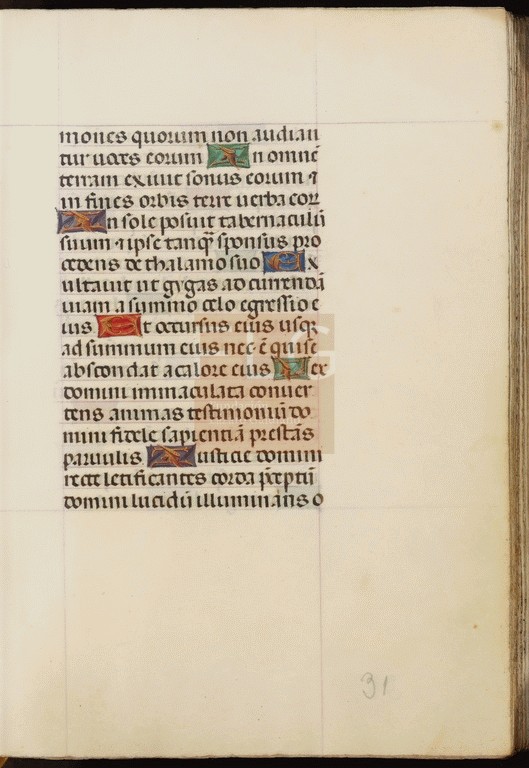 mones quorum non audian
tur uoces eorum In omnē
terram exiuit sonus eorum ⁊
in fines orbis terre uerba eorꝝ
In sole posuit tabernaculū
suum ⁊ ipse tanq̄ sponsus pro
cedens de thalamo suo Ex
ultauit ut gygas ad currendā
uiam a summo celo egressio e
ius Et occursus eius usqꝫ
ad summum eius nec ē qui se
abscondat a calore eius Lex
domini immaculata conuer
tens animas testimoniū do
mini fidele sapientiā prestās
paruulis Iusticie domini
recte letificantes corda p̄ceptū
domini lucidū illuminans o
31